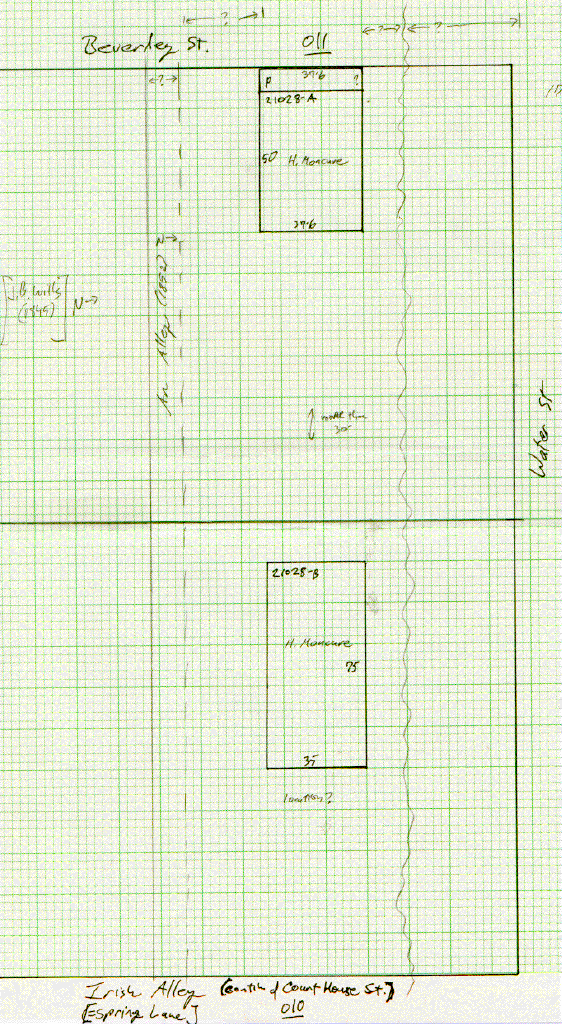 ?
Beverley St.
011
? ?
?
P 37·6 ?
21028-A
50 H. Moncure
37·6
N→
An Alley (1852)
J.B. Wills
(1845)
N→
more than
30
Water St
21028-B
H. Moncure
75
35
location?
Irish Alley [contin of Court House St.]
[Espring Lane,]
010